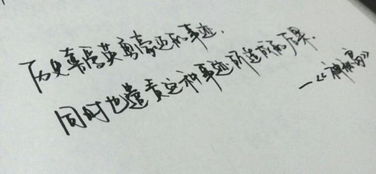 历史喜爱英勇豪迈的事迹,
同时也谴责这种事迹所造成的后果.
—《神探夏